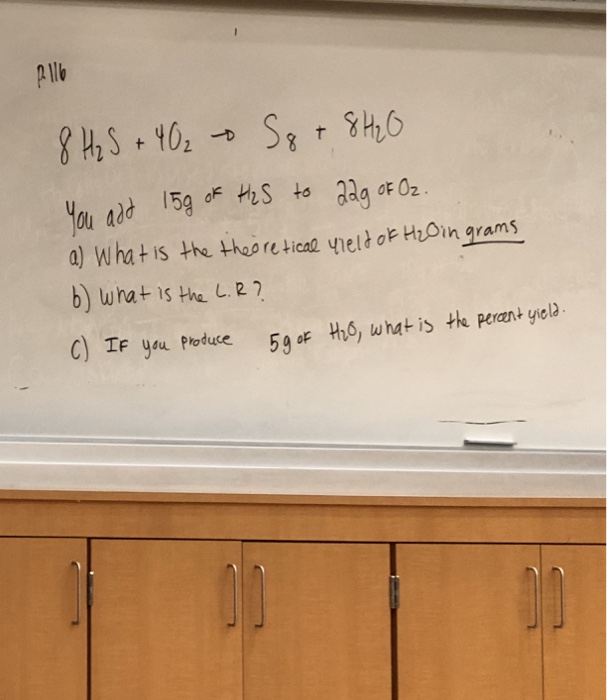 P.116
8 H₂S + 4O₂ → S₈ + 8H₂O
You add 15g of H₂S to 22g of O₂.
a) What is the theoretical yield of H₂O in grams
b) What is the L.R?
c) If you produce 5g of H₂O, what is the percent yield.